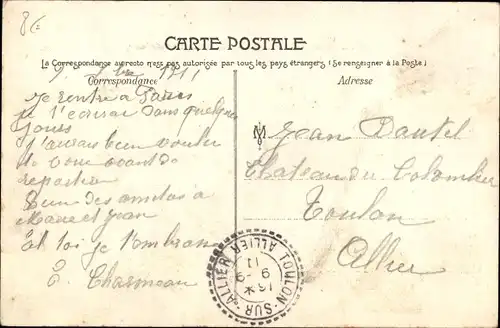 8€
CARTE POSTALE
La Correspondance au recto n'est pas autorisée par tous les pays étrangers (Se renseigner à la Poste)
Correspondance
Adresse
9 7bre 1911
Je rentre à Paris
je t'écrirai dans quelques
jours
J'aurais bien voulu
te voir avant de
repartir
bien des amitiés à
Marie et Jean
Et toi je t'embrasse
M Jean
Chateau du
Toulon
Allier
TOULON-SUR-ALLIER ALLIER
9 -9
11